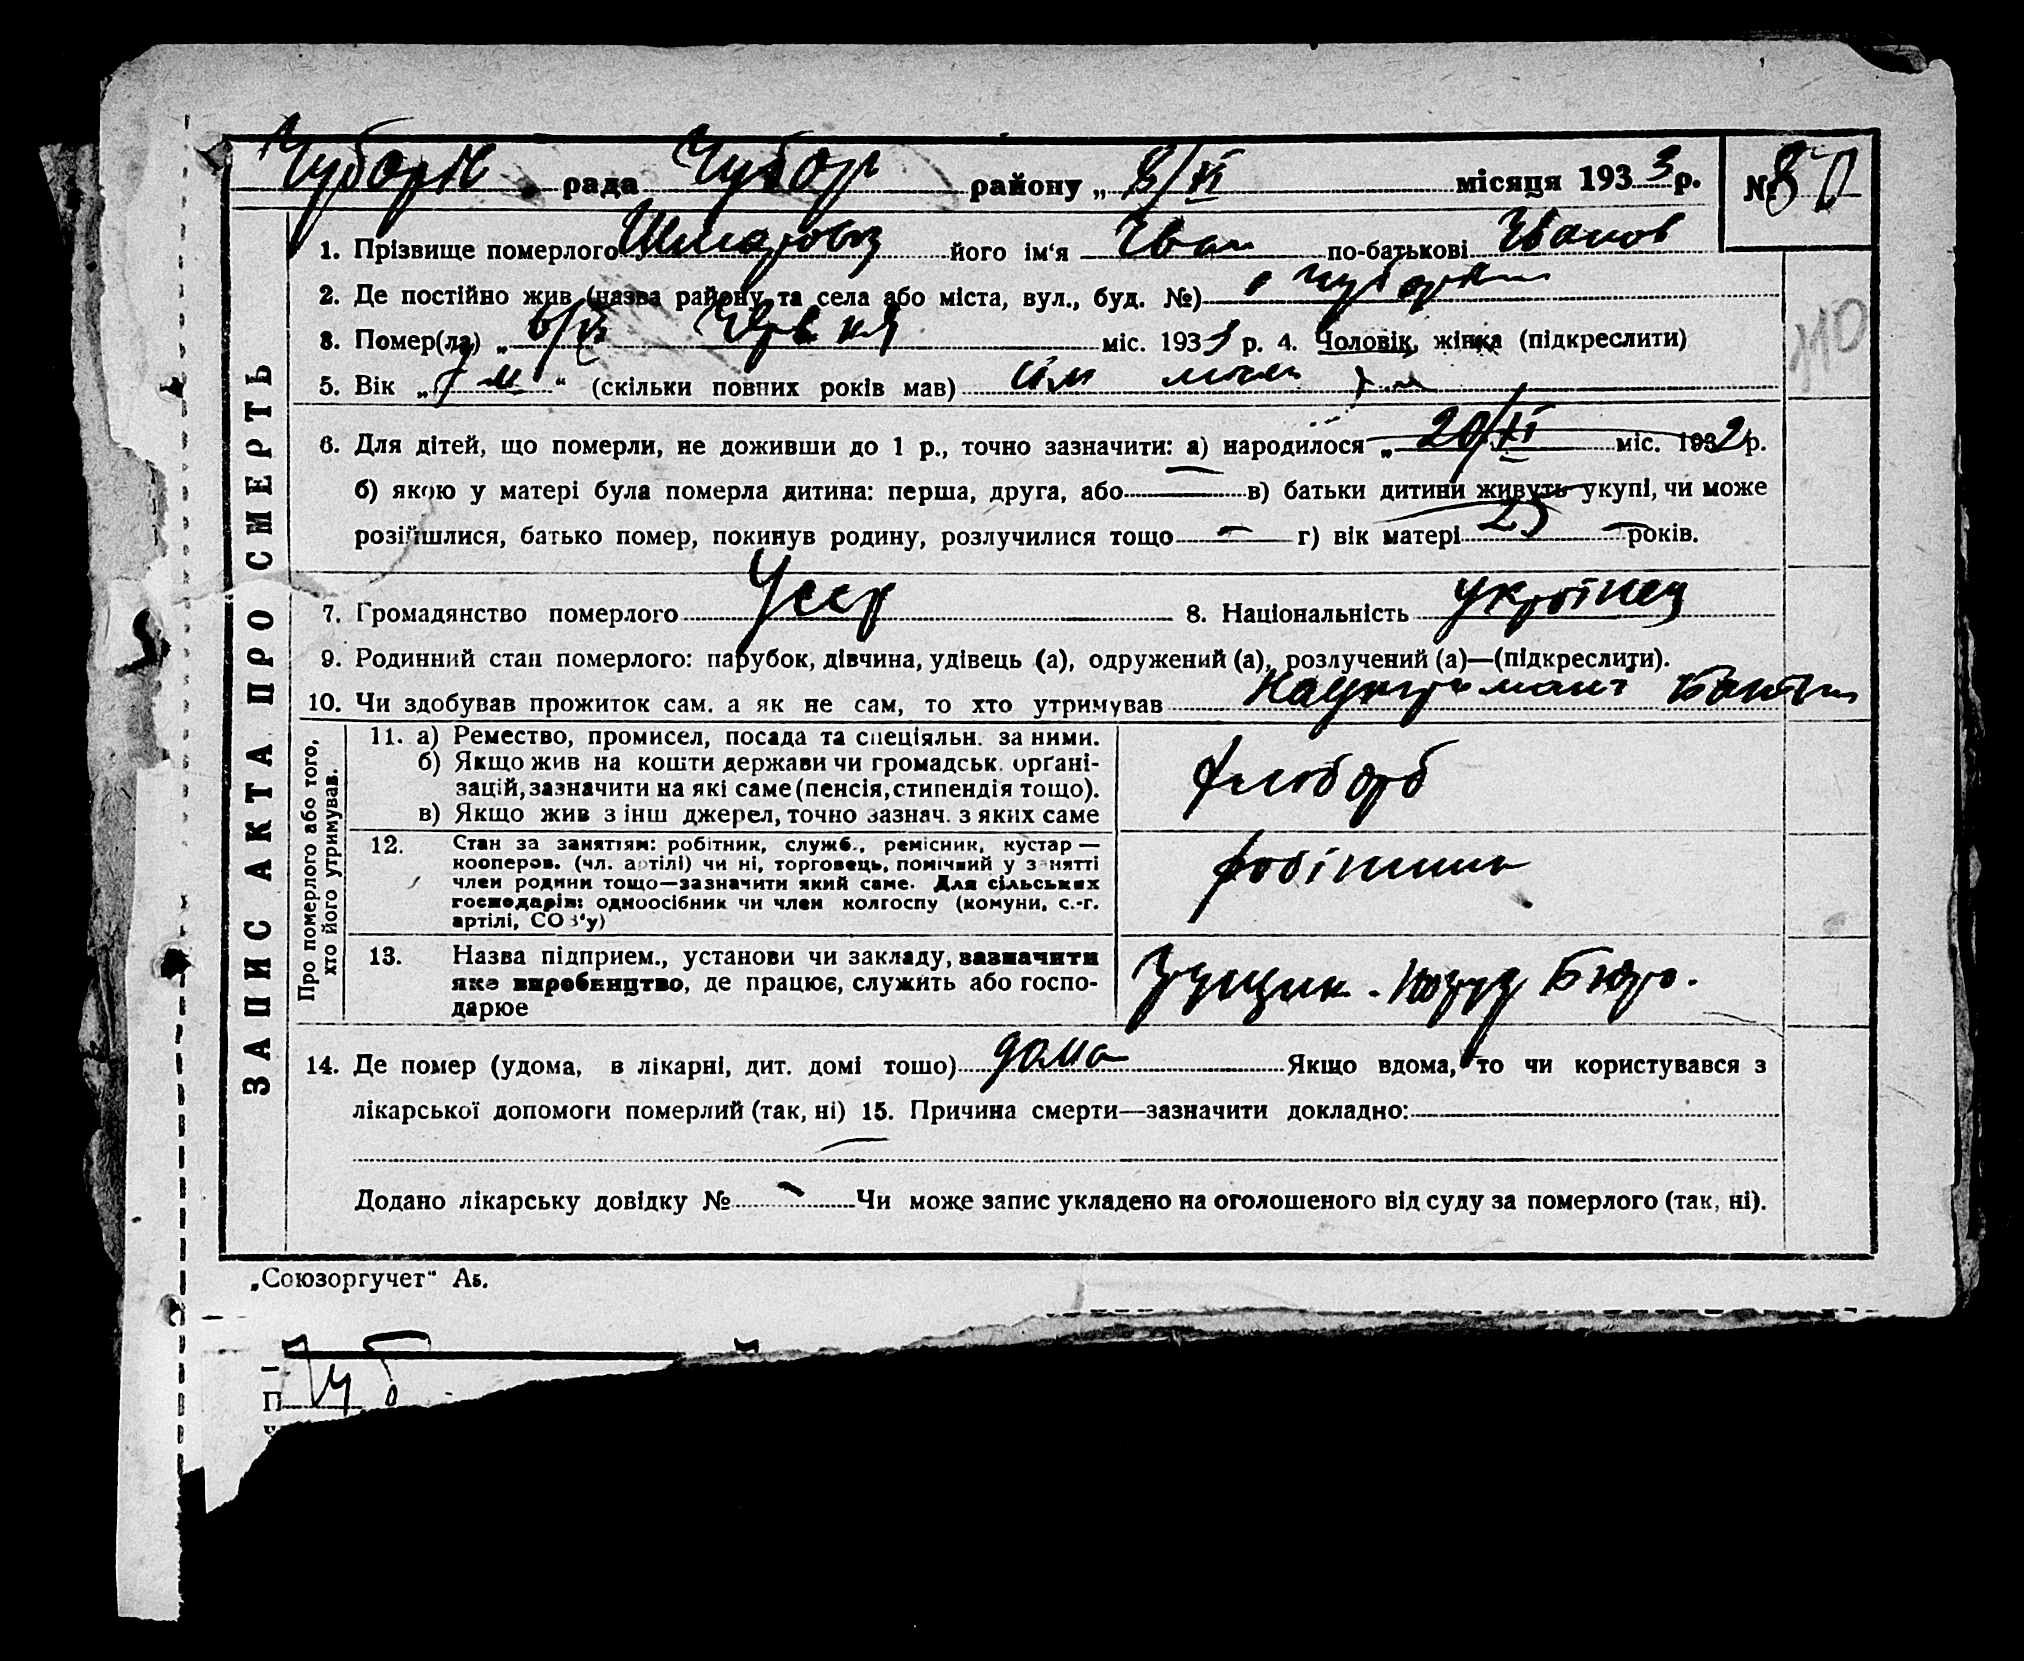 рада Чубар району „ 8/VI місяця 1933 р. № 80
1. Прізвище померлого його ім'я Іван по-батькові Іванов
2. Де постійно жив (назва району та села або міста, вул., буд. №)
3. Помер(ла) „ 6/VI міс. 1933 р. 4. Чоловік, жінка (підкреслити)
5. Вік „ 7 м “ (скільки повних років мав) сім 7 м
6. Для дітей, що померли, не доживши до 1 р., точно зазначити: а) народилося „ 20/XI міс. 1932 р.
б) якою у матері була померла дитина: перша, друга, або — в) батьки дитини живуть укупі, чи може
розійшлися, батько помер, покинув родину, розлучилися тощо — г) вік матері 25 років.
7. Громадянство померлого Усср 8. Національність українец
9. Родинний стан померлого: парубок, дівчина, удівець (а), одружений (а), розлучений (а)—(підкреслити).
10. Чи здобував прожиток сам, а як не сам, то хто утримував
ЗАПИС АКТА ПРО СМЕРТЬ
Про померлого або того,
хто його утримував.
11. а) Ремество, промисел, посада та спеціяльн. за ними.
б) Якщо жив на кошти держави чи громадськ. органі-
зацій, зазначити на які саме (пенсія, стипендія тощо).
в) Якщо жив з інш джерел, точно зазнач. з яких саме
хлібороб
12. Стан за заняттям: робітник, служб., ремісник, кустар —
кооперов. (чл. артілі) чи ні, торговець, помічний у занятті
член родини тощо—зазначити який саме. Для сільських
господарів: одноосібник чи член колгоспу (комуни, с.-г.
артілі, СОЗ'у)
робітник
13. Назва підприєм., установи чи закладу, зазначити
яке виробництво, де працює, служить або госпо-
дарюе
Бюро.
14. Де помер (удома, в лікарні, дит. домі тошо) дома Якщо вдома, то чи користувався з
лікарської допомоги померлий (так, ні) 15. Причина смерти—зазначити докладно:
Додано лікарську довідку № Чи може запис укладено на оголошеного від суду за померлого (так, ні).
„Союзоргучет“ А5.
П Чуб